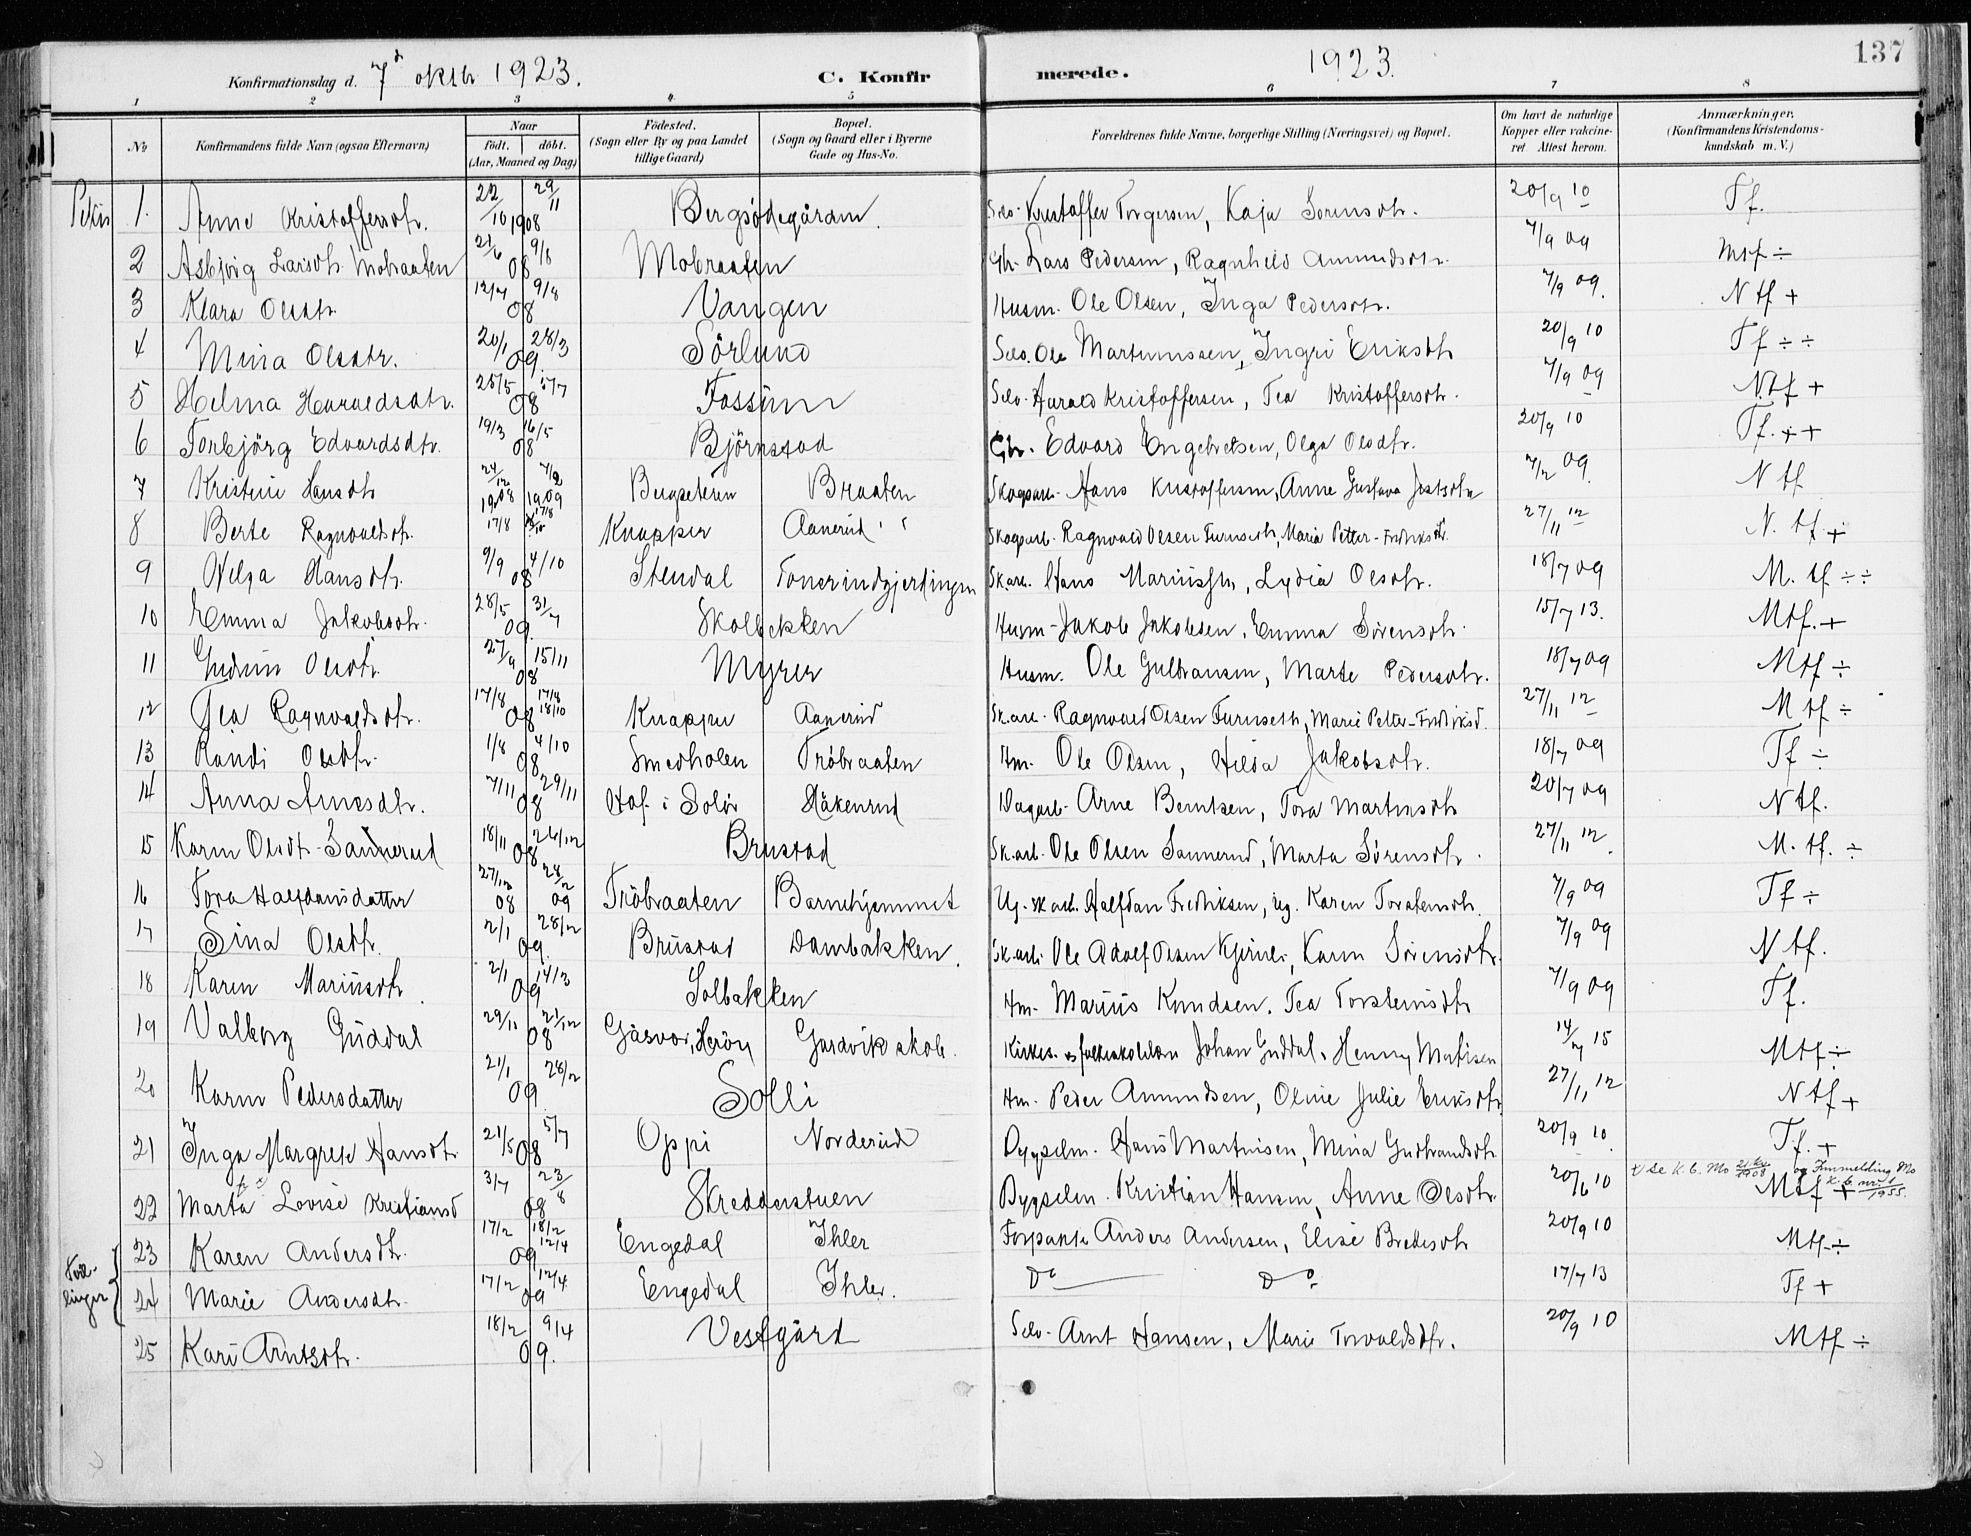 Konfirmationsdag d. 7d oktbr 1923. C. Konfirmerede. 1923. 137
1 2 3 4 5 6 7 8
No
Konfirmandens fulde Navn (ogsaa Efternavn)
Naar
født. døbt.
(Aar, Maaned og Dag)
Fødested.
(Sogn eller By og paa Landet
tillige Gaard)
Bopæl.
(Sogn og Gaard eller i Byerne
Gade og Hus-No.
Forældrenes fulde Navne, borgerlige Stilling (Næringsvei) og Bopæl.
Om havt de naturlige
Kopper eller vakcine-
ret. Attest herom.
Anmærkninger.
(Konfirmandens Kristendoms-
kundskab m. V.)
Piker 1. Anne Kristoffersdtr. 22/10 1908 29/11 Bergsödegården. Selv. Kristoffer Torgersen, Kaja Sorensdtr. 20/9 10 Tf.
2 Asbjörg Larsdtr. Mobraaten 21/6 08 9/8 Mobraaten Gbr. Lars Pedersen, Ragnhild Amundsdtr. 7/9 09 Mtf ÷
3 Klara Olsdtr. 12/7 08 9/8 Vangen Husm. Ole Olsen, Inga Pedersdtr. 7/9 09. N tf +
4 Mina Olsdtr. 20/1 09. 28/3 Sörlund Selv. Ole Martinussen, Ingri Eriksdtr 20/9 10 Tf ÷ ÷
5 Helma Haraldsdtr. 25/5 08 5/7 Fossum Selv. Harald Kristoffersen, Tea Kristoffersdtr. 7/9 09 N.tf +
6 Torbjörg Edvardsdtr. 19/3 08 16/5 Björnstad Gbr. Edvard Engebretsen, Olga Olsdtr. 20/9 10 Tf. ++
7 Kristine Hansdtr 24/12 1908 7/2 1909 Bergseteren Braaten Skogsarb. Hans Kristoffersen, Anne Gustava Jostsdtr 7/2 09. N tf
8 Berte Ragnvaldsdtr. 17/8 17/8 18/10 Knapper Aanerud Skogsarb. Ragnvald Olsen Furuseth, Maria Petter-Fredriksdtr. 27/11 12 N. tf +
9 Helga Hansdtr. 9/9 08 4/10 Stendal Tonerudgjerdingen Sk.arb. Hans Mariussen, Lydia Olsdtr. 18/7 09 M. tf ÷÷
10 Emma Jakobsdtr. 28/5 09. 31/7 Skolbekken Husm. Jakob Jakobsen, Emma Sörensdtr. 15/7 13. Mtf. +
11 Gudrun Olsdtr. 27/9 08 15/11 Myrer Husm. Ole Gulbransen, Marte Pedersdtr. 18/7 09 Mtf ÷
12 Tea Ragnvaldsdtr. 17/8 08 17/8 18/10 Knapper Aanerud Sk.arb. Ragnvald Olsen Furuseth, Marie Petter-Fredriksd. 27/11 12 M tf ÷
13 Randi Olsdtr. 1/8 08 4/10 Smedholen Tröbraaten Hm. Ole Olsen, Hilda Jakobsdtr. 18/7 09 Tf ÷
14 Anna Arnesdtr. 7/11 08 29/11 Hof i Solör Håkenrud Dagarb. Arne Berntsen, Tora Martinsdtr 20/7 09 N tf.
15 Karen Olsdtr. Sannerud 18/11 08 26/12 Brustad Sk.arb. Ole Olsen Sannerud, Marta Sörensdtr. 27/11 12. M. tf. ÷
16 Tora Halfdansdatter 27/12 08 28/2 09 Tröbraaten Barnehjemmet Ug. sk.arb. Halfdan Fredriksen, ug. Karen Torstensdtr. 7/9 09 Tf ÷
17 Sina Olsdtr. 2/1 09. 28/2 Brustad Dambakken. Sk.arb. Ole Adolf Olsen Kjernli, Karen Sörensdtr. 7/9 09 N tf.
18 Karen Mariusdtr. 2/1 09 14/3 Solbakken Hm. Marius Knudsen, Tea Torstensdtr 7/9 09 Tf.
19 Valborg Guddal 29/11 08 21/12 Gåsvær, Heröy Gardvik skole. Kirkes. og folkeskolelærer Johan Guddal, Henny Matisen 14/7 15 Mtf ÷
20 Karen Pedersdatter 21/1 09. 28/2 Solli Hm. Peder Amundsen, Oline Julie Eriksdtr 27/11 12 N tf +
21 Inga Margrete Hansdtr. 21/5 08 5/7 Oppi Norderud Bygselm. Hans Martinsen, Mina Gudbrandsdtr 20/9 10. Tf. +
22 Marta Lovise Kristiansd 3/7 08 23/8 Skredderstuen Bygselm. Kristian Hansen, Anne Olsdtr. 20/6 10 Mtf +
se K. b. Mo 1908 og Innmelding Mo K. b. nr. 1 1955.
Tvil-
linger
23 Karen Andersdtr. 17/2 09 18/2 12/4 Engedal Ihler Forpakter Anders Andersen, Elise Bredesdtr 20/9 10 Mtf ÷
24 Marie Andersdtr. 17/2 09 12/4 Engedal Ihler. Do Do 17/7 13 Tf +
25 Kari Arntsdtr. 18/2 09. 9/4 Vestgård Selv. Arnt Hansen, Marie Torvaldsdtr. 20/9 10 Mtf ÷